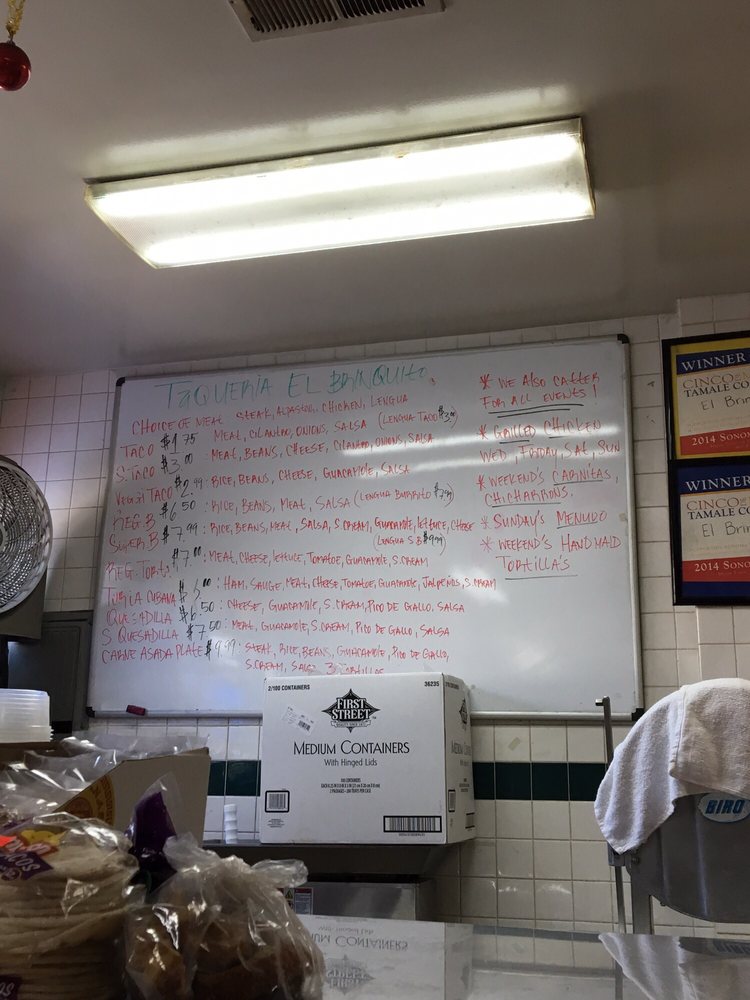 TAQUERIA EL BRINQUITO
CHOICE OF MEAT STEAK, ALPASTOR, CHICKEN, LENGUA
TACO $1.75 MEAT, CILANTRO, ONIONS, SALSA (LENGUA TACO
S. TACO $3.00 MEAT, BEANS, CHEESE, CILANTRO, ONIONS, SALSA
TACO $2.99: RICE, BEANS, CHEESE, GUACAMOLE, SALSA
REG. B $6.50: RICE, BEANS, MEAT, SALSA (LENGUA BURRITO
SUPER B $7.99: RICE, BEANS, MEAT, SALSA, S.CREAM, GUACAMOLE, LETTUCE, CHEESE
(LENGUA S.B $9.99)
REG. TORTA $7.00: MEAT, CHEESE, LETTUCE, TOMATOE, GUACAMOLE, S.CREAM
CUBANA : HAM, MEAT, CHEESE, TOMATOE, GUACAMOLE, S.CREAM
QUESADILLA $6.50: CHEESE, GUACAMOLE, S.CREAM, PICO DE GALLO, SALSA
S QUESADILLA $7.50: MEAT, GUACAMOLE, S.CREAM, PICO DE GALLO, SALSA
CARNE ASADA PLATE $9.99: STEAK, RICE, BEANS, GUACAMOLE, PICO DE GALLO,
S.CREAM, SALSA 3 TORTILLAS
* WE ALSO CATTER
FOR ALL EVENTS!
* GRILLED CHICKEN
WED, FRIDAY, SAT, SUN
* WEEKEND'S CARNITAS,
CHICHARRONS.
* SUNDAY'S MENUDO
* WEEKEND'S HANDMAID
TORTILLA'S
WINNER
CINCO
TAMALE CO
El Brin
2014 SONO
WINNER
CINCO
TAMALE CO
El Brin
2014 SONO
2/100 CONTAINERS
36235
FIRST
STREET
MEDIUM CONTAINERS
With Hinged Lids
BIRO